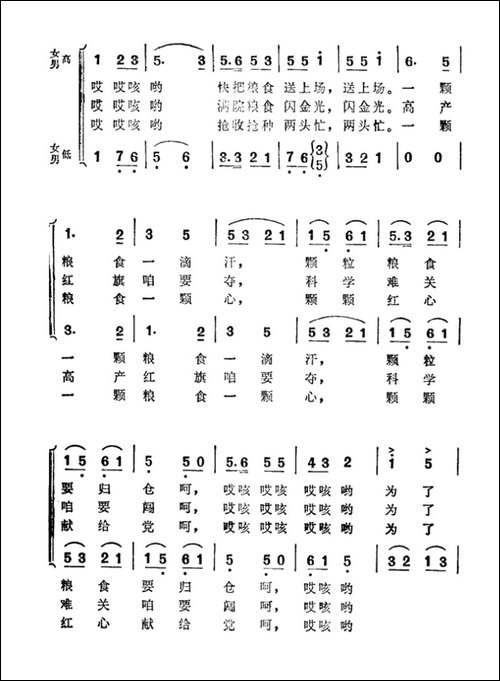 女男高 1 2 3 5. 3 5.6 5 3 5 5 i 5 5 i 6. 5
哎 哎咳 哟 快把粮食 送上场，送上场。一 颗
哎 哎咳 哟 满院粮食 闪金光，闪金光。高 产
哎 哎咳 哟 抢收抢种 两头忙，两头忙。一 颗
女男低 1 7 6 5 6 3.3 2 1 7 6 3 5 3 2 1 0 0
1. 2 3 5 5 3 2 1 1 5 6 1 5.3 2 1
粮 食 一 滴 汗， 颗 粒 粮 食
红 旗 咱 要 夺， 科 学 难 关
粮 食 一 颗 心， 颗 颗 红 心
3. 2 1. 2 3 5 5 3 2 1 1 5 6 1
一 颗 粮 食 一 滴 汗， 颗 粒
高 产 红 旗 咱 要 夺， 科 学
一 颗 粮 食 一 颗 心， 颗 颗
1 5 6 1 5 5 0 5.6 5 5 4 3 2 i 5
要 归 仓 呵， 哎咳 哎咳 哎咳 哟 为 了
咱 要 闯 呵， 哎咳 哎咳 哎咳 哟 为 了
献 给 党 呵， 哎咳 哎咳 哎咳 哟 为 了
5 3 2 1 1 5 6 1 5 5 0 6 1 5 3 2 1 3
粮 食 要 归 仓 呵， 哎咳 哟
难 关 咱 要 闯 呵， 哎咳 哟
红 心 献 给 党 呵， 哎咳 哟